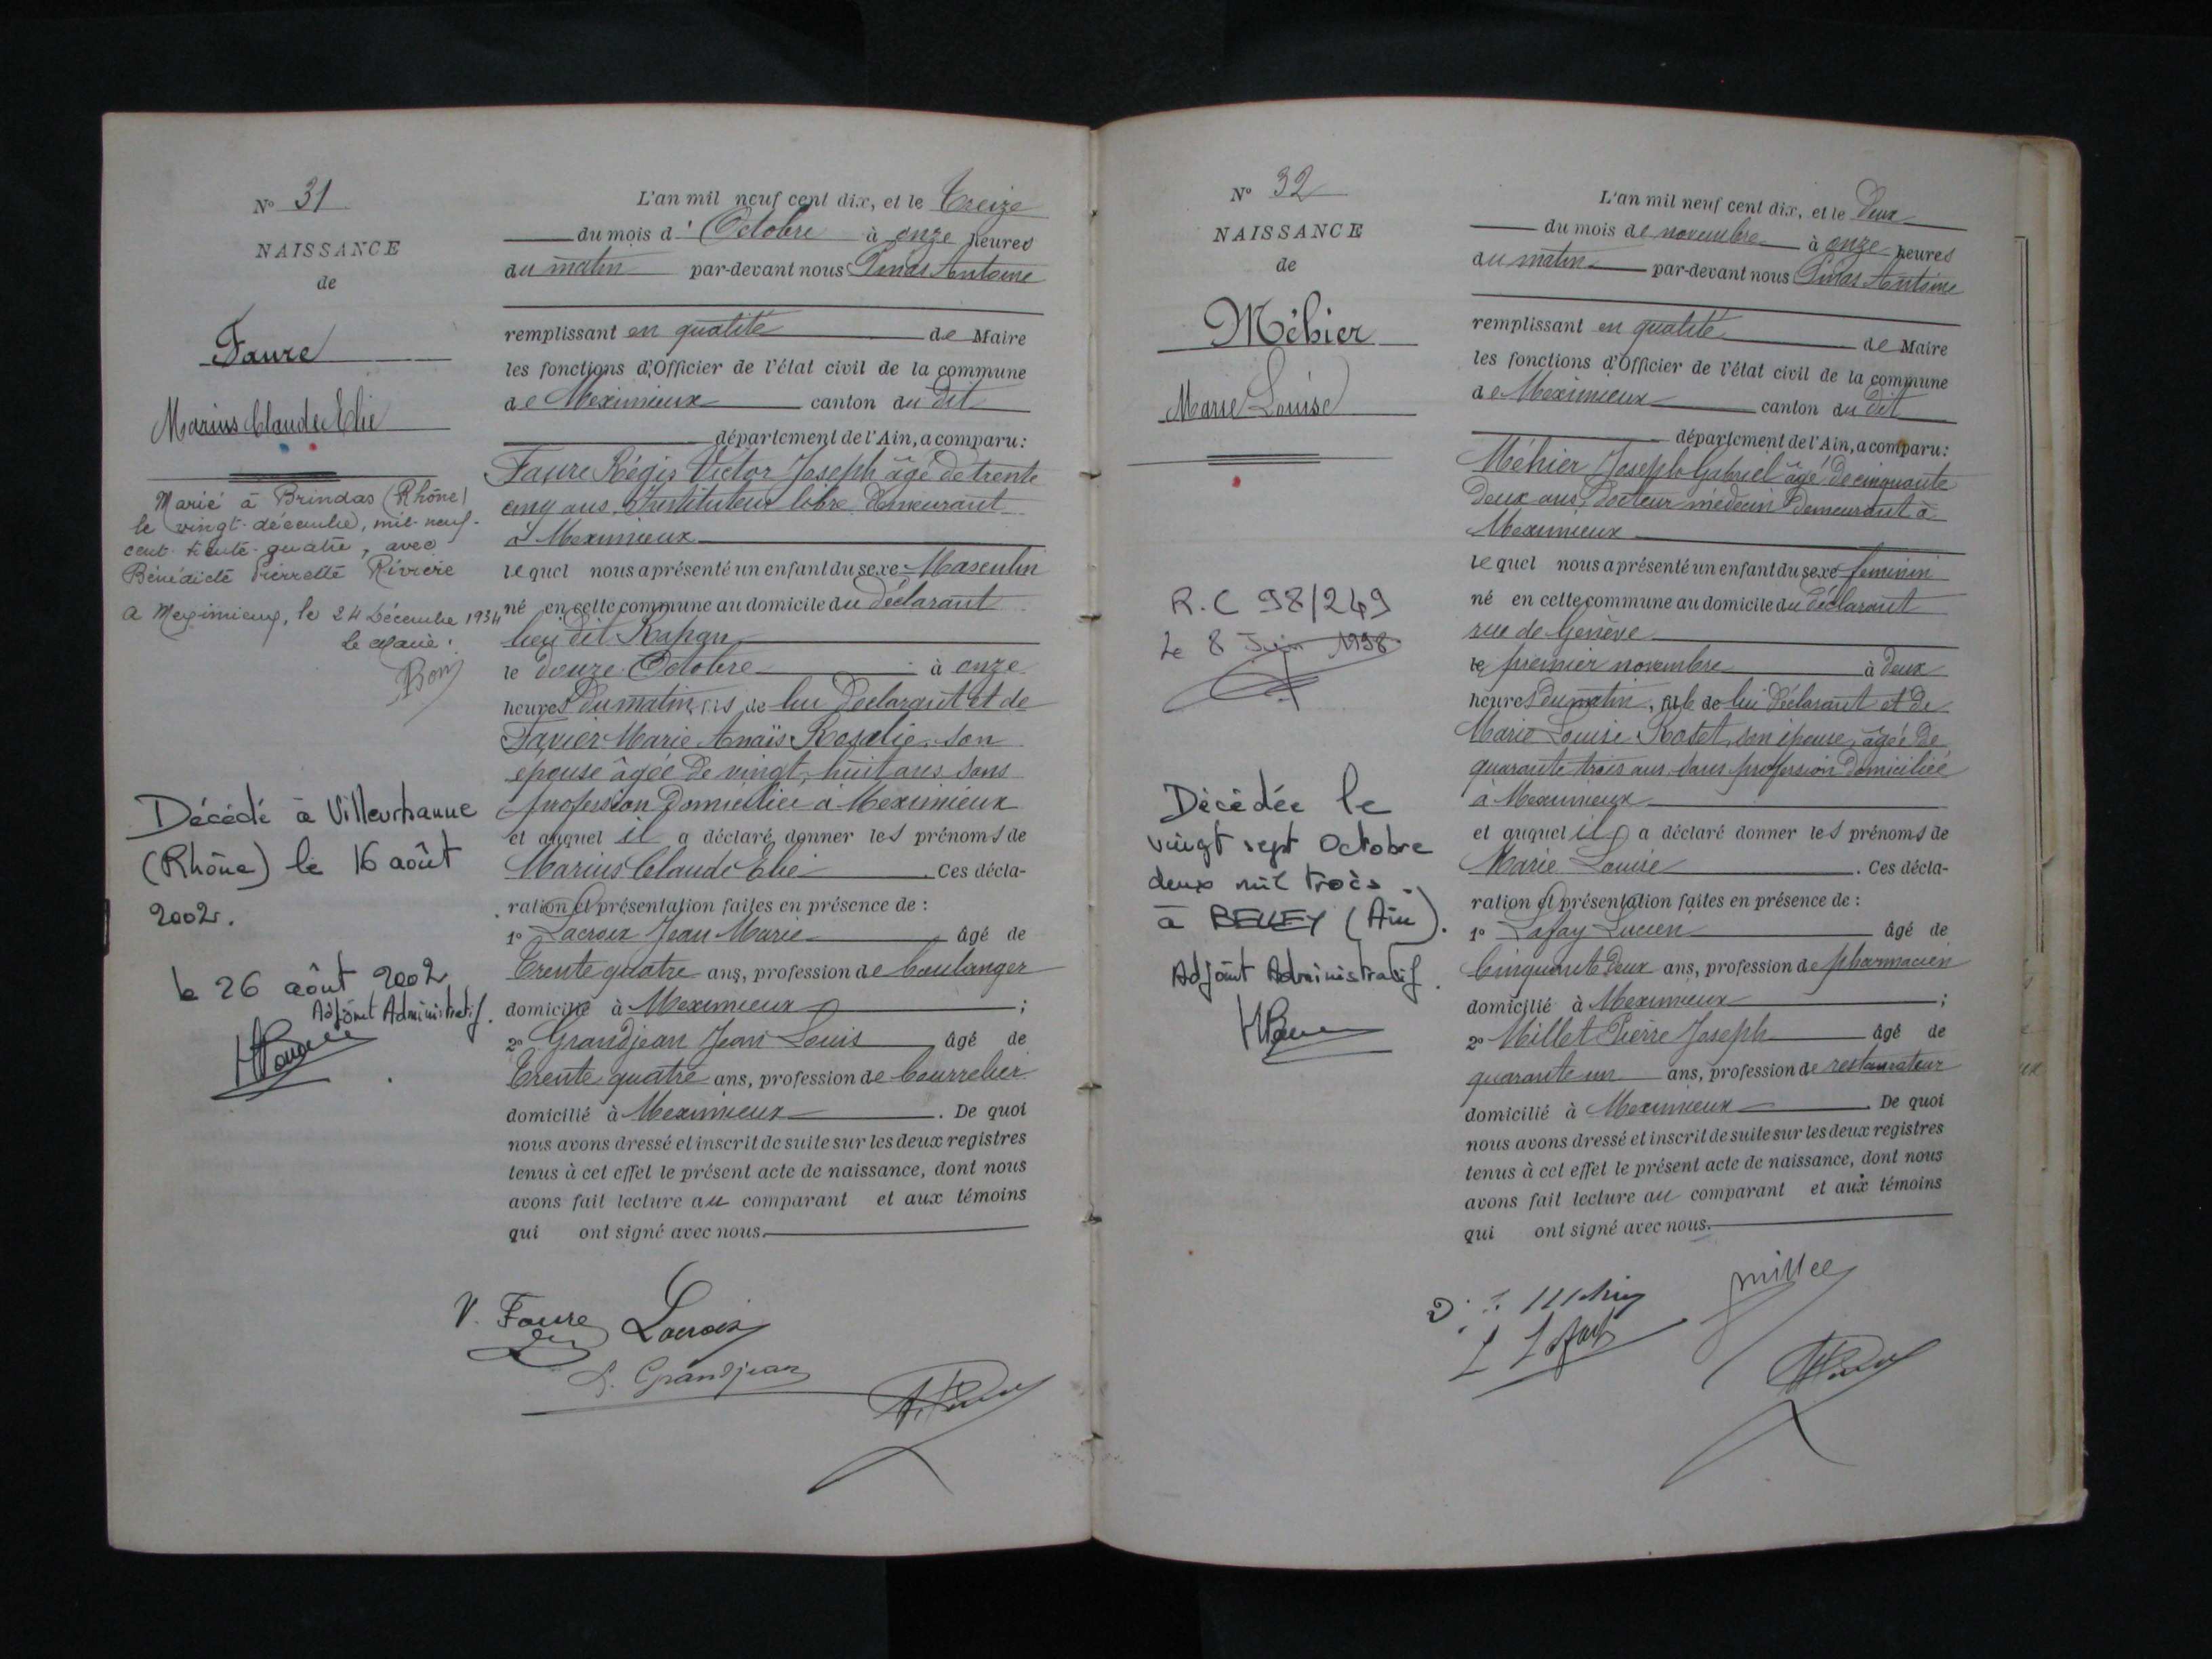 N° 31
NAISSANCE
de
Faure
Marius Claude Elie
Marié à Brindas (Rhône)
le vingt-décembre, mil-neuf-
cent-trente-quatre, avec
Bénédicte Pierrette Rivière
A Meximieux, le 24 Décembre 1934
le Maire :
Décédé à Villeurbanne
(Rhône) le 16 août
2002.
le 26 août 2002
Adjoint Administratif.
L'an mil neuf cent dix, et le Treize
du mois d' Octobre à onze heures
du matin par-devant nous Antoine
remplissant en qualité de Maire
les fonctions d'Officier de l'état civil de la commune
de Meximieux canton du dit
département de l'Ain, a comparu :
Faure Régis Victor Joseph âgé de trente
cinq ans, Instituteur libre demeurant
à Meximieux
lequel nous a présenté un enfant du sexe Masculin
né en cette commune au domicile du déclarant
lieu dit
le douze Octobre à onze
heures du matin, fils de lui déclarant et de
Favier Marie Anaïs Rosalie son
épouse âgée de vingt-huit ans sans
profession domiciliée à Meximieux
et auquel il a déclaré donner les prénoms de
Marius Claude Elie . Ces décla-
ration et présentation faites en présence de :
1° Lacroix Jean Marie âgé de
Trente quatre ans, profession de boulanger
domicilié à Meximieux ;
2° Grandjean Jean Louis âgé de
Trente quatre ans, profession de bourrelier
domicilié à Meximieux . De quoi
nous avons dressé et inscrit de suite sur les deux registres
tenus à cet effet le présent acte de naissance, dont nous
avons fait lecture au comparant et aux témoins
qui ont signé avec nous.
V. Faure Lacroix
L. Grandjean
N° 32
NAISSANCE
de
Méhier
Marie Louise
R.C 98/249
Le 8 Juin 1998
Décédée le
vingt sept Octobre
deux mil trois.
à BELLEY (Ain).
Adjoint Administratif.
L'an mil neuf cent dix, et le Deux
du mois de novembre à onze heures
du matin par-devant nous Antoine
remplissant en qualité de Maire
les fonctions d'Officier de l'état civil de la commune
de Meximieux canton du dit
département de l'Ain, a comparu :
Méhier Joseph Gabriel âgé de cinquante
deux ans, docteur médecin demeurant à
Meximieux
lequel nous a présenté un enfant du sexe féminin
né en cette commune au domicile du déclarant
rue de Genève
le premier novembre à deux
heures du matin, fille de lui déclarant et de
Marie Louise son épouse, âgée de
quarante trois ans sans profession domiciliée
à Meximieux
et auquel il a déclaré donner les prénoms de
Marie Louise . Ces décla-
ration et présentation faites en présence de :
1° Lafay Lucien âgé de
Cinquante deux ans, profession de pharmacien
domicilié à Meximieux ;
2° Millet Pierre Joseph âgé de
quarante un ans, profession de restaurateur
domicilié à Meximieux . De quoi
nous avons dressé et inscrit de suite sur les deux registres
tenus à cet effet le présent acte de naissance, dont nous
avons fait lecture au comparant et aux témoins
qui ont signé avec nous.
L Lafay